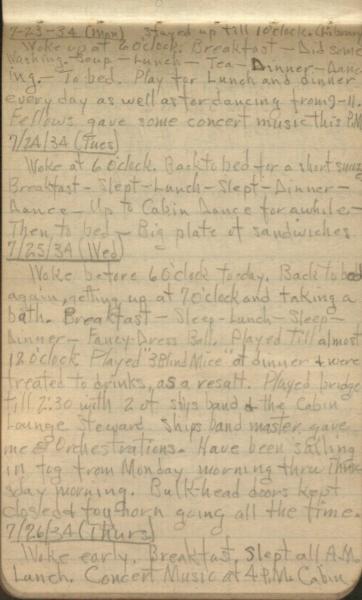 7-23-34 (Mon) stayed up till 10'clock.
Woke up at 6 O'clock. Breakfast - Did some
washing - Soup - Lunch - Tea - Dinner - Danc
ing. - To bed. Play for Lunch and dinner
every day as well as for dancing from 9-11.
Fellows gave some concert music this P.M.
7/24/34 (Tues)
Woke at 6 O'clock. Back to bed for a short snuz
Breakfast - Slept - Lunch - Slept - Dinner -
Dance - Up to Cabin Dance for awhile -
Then to bed - Big plate of sandwiches
7/25/34 (Wed)
Woke before 6 O'clock today. Back to bed
again, getting up at 7 O'clock and taking a
bath. Breakfast - Sleep - Lunch - Sleep -
Dinner - Fancy Dress Ball. Played till almost
12 O'clock. Played "3 Blind Mice" at dinner & were
treated to drinks, as a result. Played bridge
till 2:30 with 2 of ships band & the Cabin
Lounge Steward. Ships band master gave
me 8 Orchestrations. Have been sailing
in fog from Monday morning thru Thur
sday morning. Bulk-head doors kept
closed & foghorn going all the time.
7/26/34 (Thurs)
Woke early. Breakfast, Slept all A.M.
Lunch. Concert Music at 4 P.M. Cabin